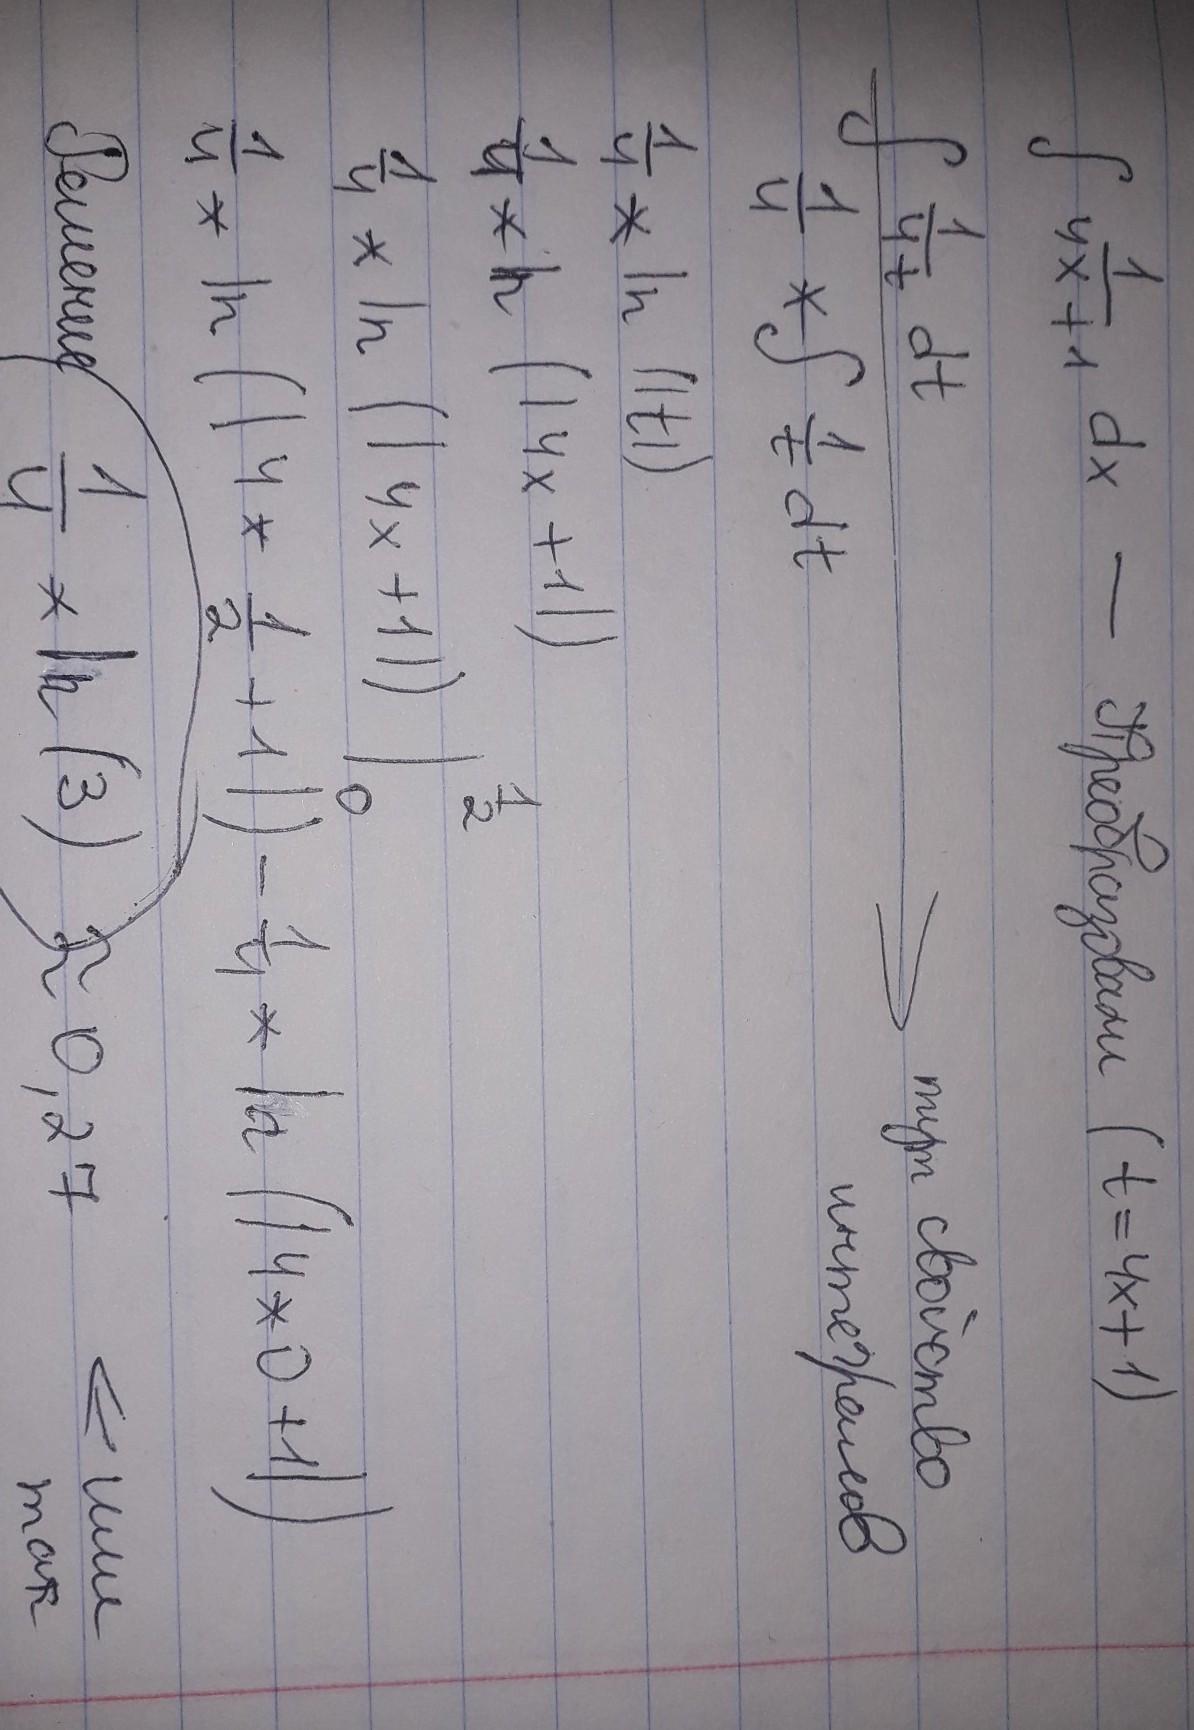 ∫ 1/4x+1 dx — Преобразовали (t=4x+1)
∫ 1/4t dt → тут свойство интегралов
1/4 * ∫ 1/t dt
1/4 * ln (|t|)
1/4 * ln (|4x+1|)
1/4 * ln (|4x+1|) | 0 1/2
1/4 * ln (|4 * 1/2 +1|) - 1/4 * ln (|4*0+1|)
Решение 1/4 * ln (3) ≈ 0,27 < или так